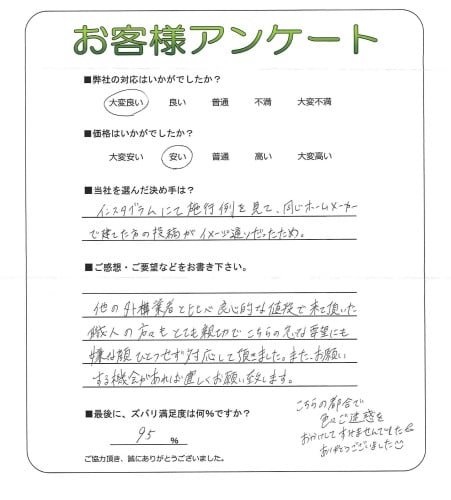 お客様アンケート
■弊社の対応はいかがでしたか？
大変良い 良い 普通 不満 大変不満
■価格はいかがでしたか？
大変安い 安い 普通 高い 大変高い
■当社を選んだ決め手は？
インスタグラムにて施行例を見て、同じホームメーカー
で建てた方の投稿がイメージ通りだったため。
■ご感想・ご要望などをお書き下さい。
他の外構業者と比べ良心的な値段で来て頂いた
職人の方々もとても親切でこちらの急な要望にも
嫌な顔ひとつせず対応して頂きました。また、お願い
する機会があれば宜しくお願い致します。
こちらの都合で
色々ご迷惑を
おかけしてすみませんでした
ありがとうございました
■最後に、ズバリ満足度は何%ですか？
95 %
ご協力頂き、誠にありがとうございました。